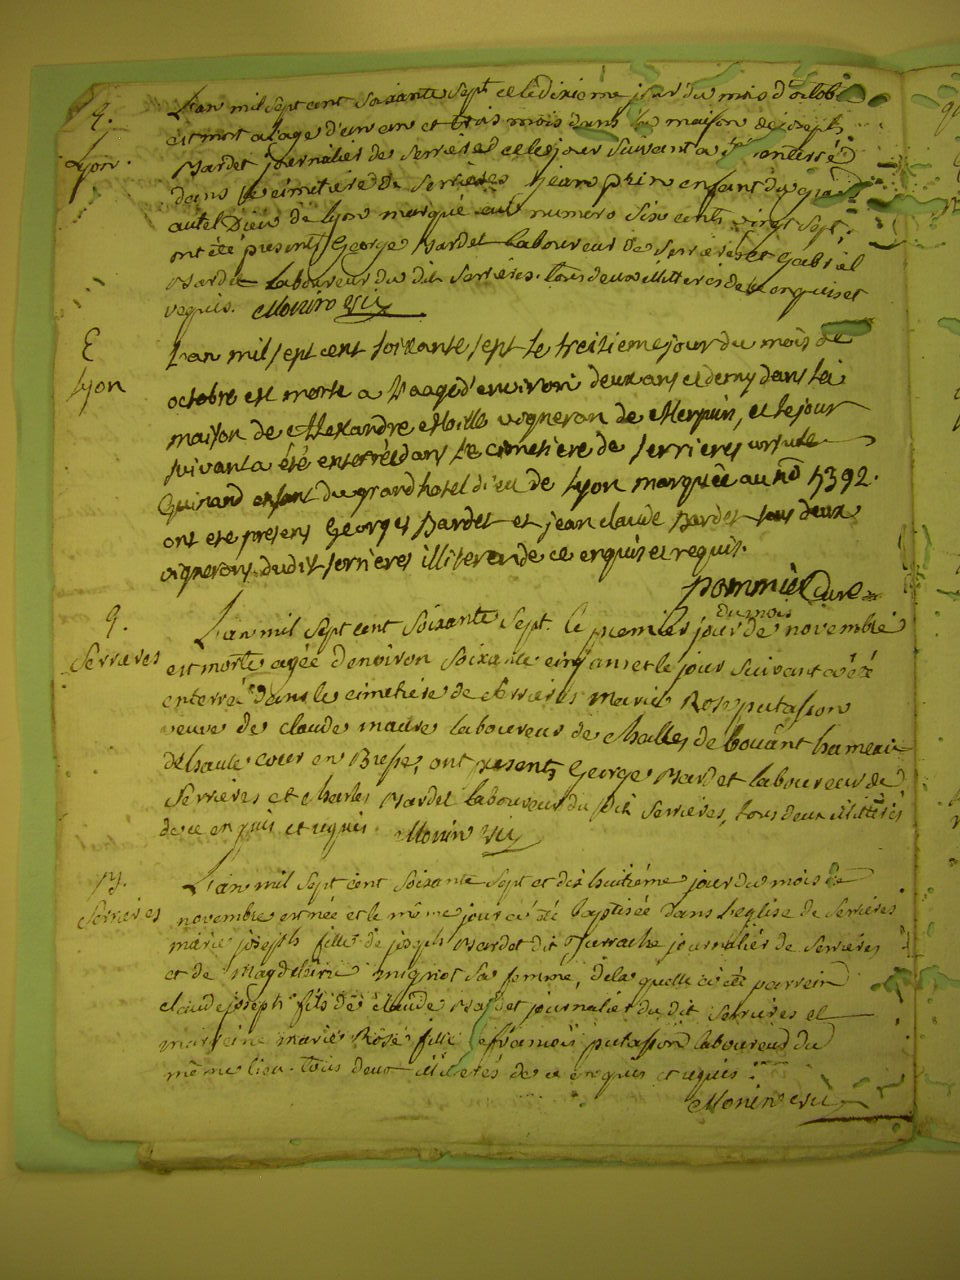 9.
Lyon.
L'an mil sept cent soixante sept et le dixieme jour du mois d'octobre
est mort a l'age d'un an et trois mois dans la maison de joseph
Nardet journalier de Serrieres et le jour suivant a été enterré
dans le cimetiere de Serrieres jean prin enfant du grand
autel Dieu de Lyon marqué au numero six cents vingt sept.
ont été presents George Nardet laboureur de Serrieres et Gabriel
Nardet laboureur du dit Serrieres. tous deux illitteres de ce enquis et
requis. Monin vic
E
Lyon
L'an mil sept cent soixante sept le treizieme jour du mois de
octobre est morte a l'aage d'environ deux ans et demy dans la
maison de Alexandre vigneron de Merpuis, et le jour
suivant a été enterrée dans le cimetiere de serrieres ursule
Guinand enfant du grand hotel dieu de Lyon marquée au n° 5392.
ont eté presens Georges Nardet et jean claude Nardet tous deux
vignerons dudit serrieres illiteres de ce enquis et requis.
pommier Curé
9.
Serrieres
L'an mil sept cent soixante sept. le premier jour du mois de novembre
est morte agée d'environ soixante cinq ans et le jour suivant a été
enterrée dans le cimetiere de Serrieres Marie Rose putasson
veuve de claude maure laboureur de challes de bouant hameau
d'haute cour en Bresse, ont presents George Nardet laboureur de
Serrieres et charles Nardet laboureur du dit Serrieres, tous deux illitterés
de ce enquis et requis. Monin vic
13.
Serrieres
L'an mil sept cent soixante sept et dix huitiéme jour du mois de
novembre est née et le même jour a été baptisée dans l'eglise de Serrieres
marie joseph fille de joseph Nardet dit journalier de Serrieres
et de Magdeleine migniot sa femme, de la quelle a été parrein
claude joseph fils de claude Nardet journalier du dit Serrieres et
marreine marie Rose fille de françois putasson laboureur du
même lieu. tous deux illiterés de ce enquis et requis.
Monin vic